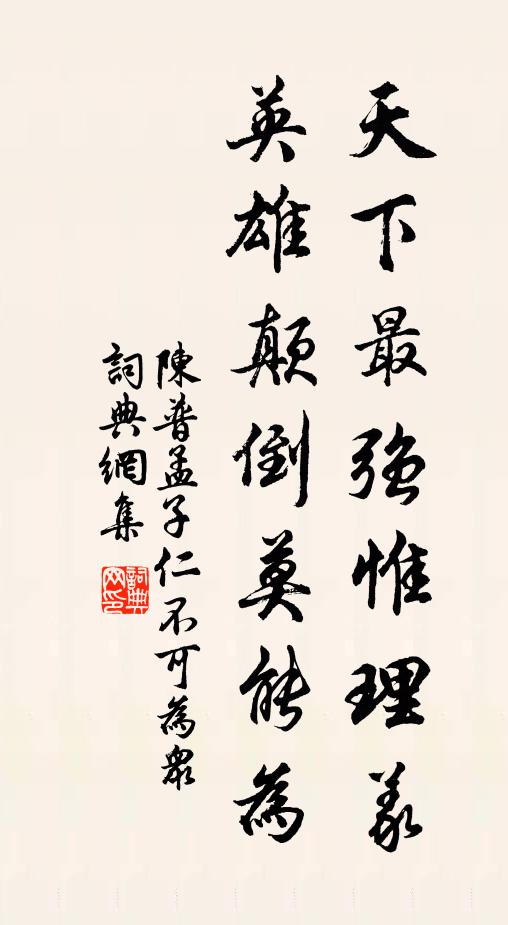 天下最强惟理義
英雄顛倒莫能為
陳普孟子仁不可為眾
詞典網集
詞典
网印